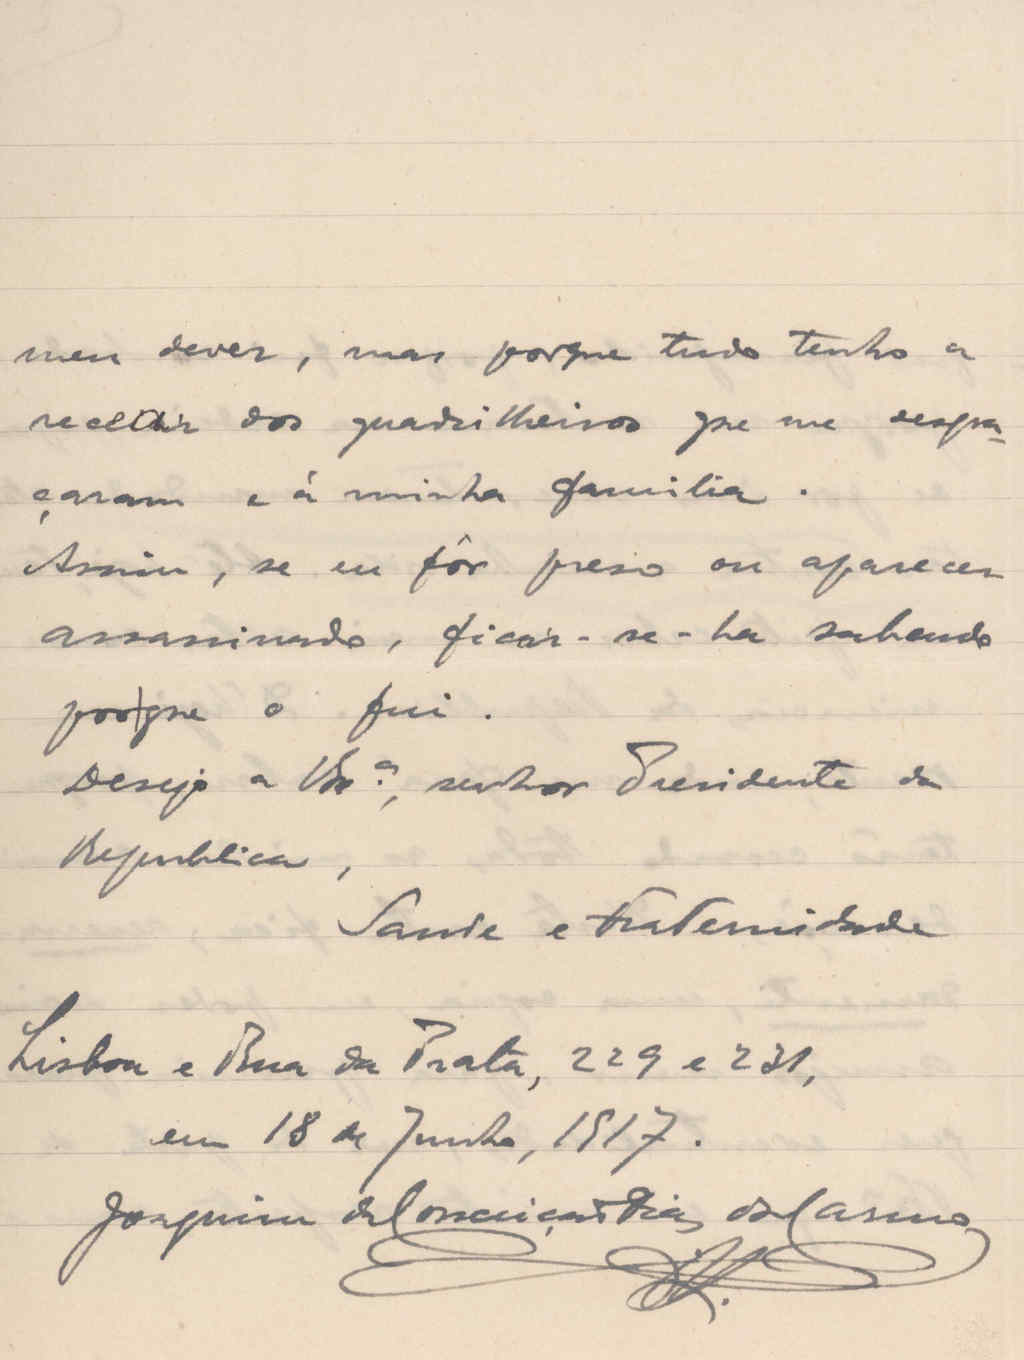 meu dever, mas porque tudo tenho a
recear dos quadrilheiros que me desgra-
çaram e á minha familia.
Assim, se eu fôr preso ou aparecer
assassinado, ficar-se-ha sabendo
porque o fui.
Desejo a V. Exª., senhor Presidente da
Republica,
Saude e Fraternidade
Lisboa e Rua da Prata, 229 e 231,
em 18 de Junho, 1917.
Joaquim da Conceição Dias do Carmo